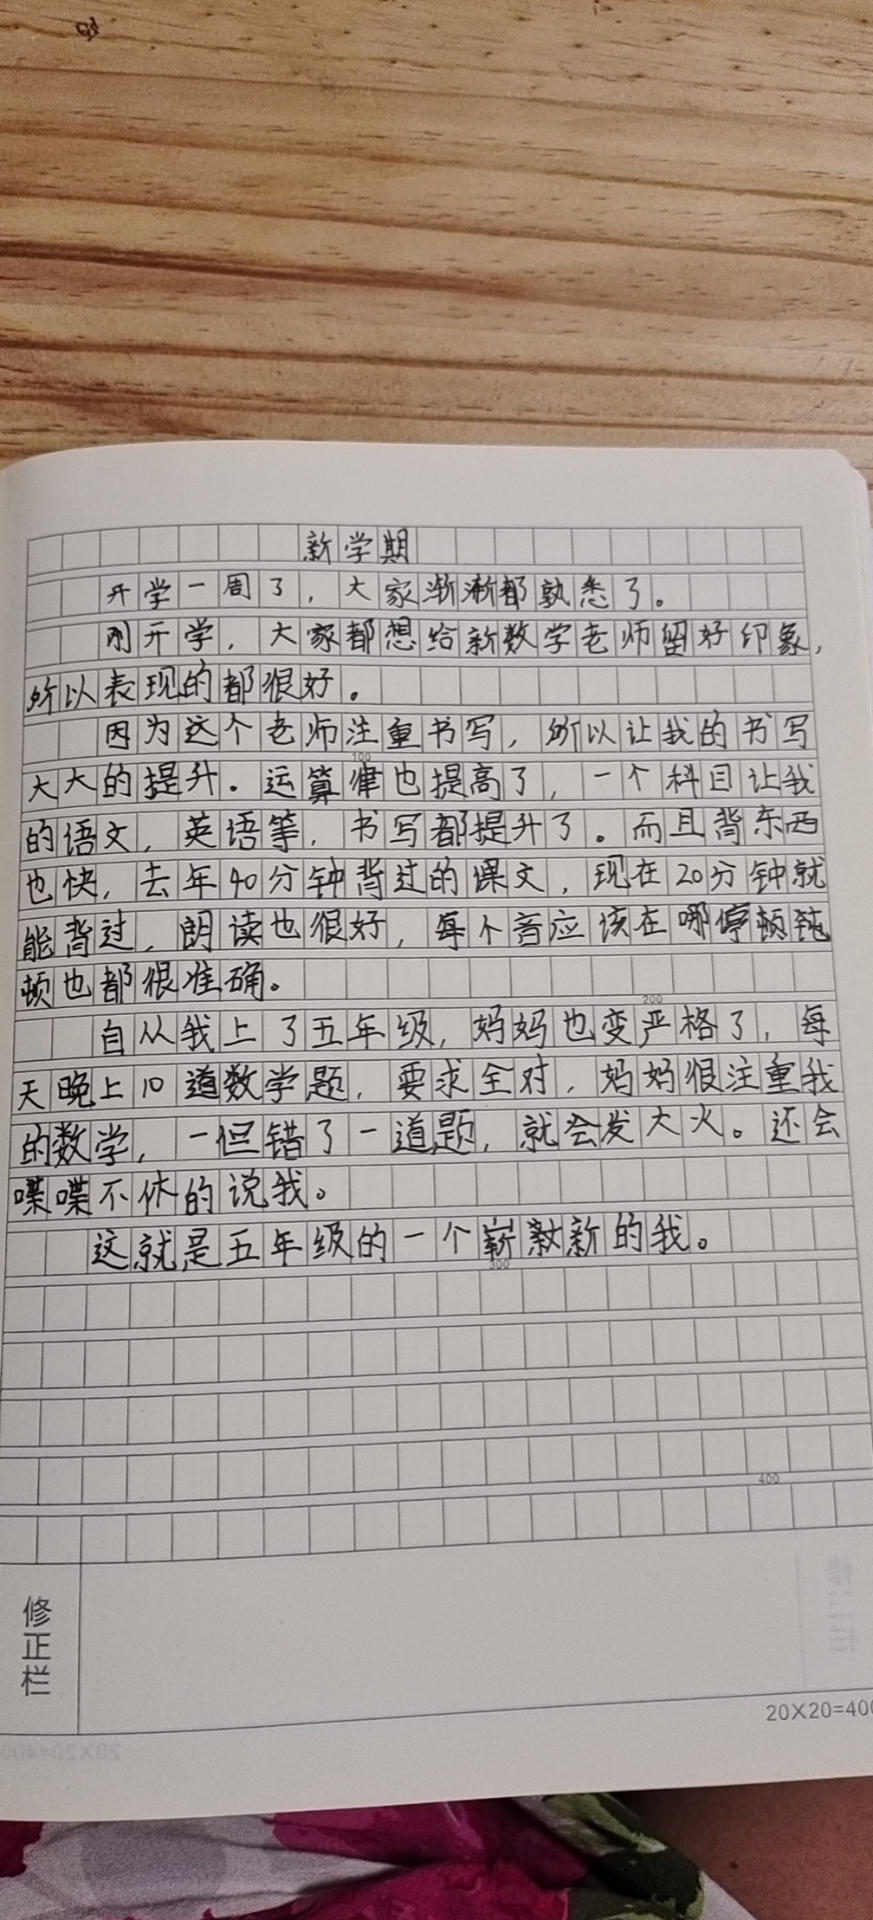 新学期
开学一周了，大家渐渐都熟悉了。
刚开学，大家都想给新数学老师留好印象，
所以表现的都很好。
因为这个老师注重书写，所以让我的书写
100
大大的提升．运算律也提高了，一个科目让我
的语文，英语等，书写都提升了。而且背东西
也快，去年40分钟背过的课文，现在20分钟就
能背过，朗读也很好，每个音应该在哪停顿
顿也都很准确。
200
自从我上了五年级，妈妈也变严格了，每
天晚上10道数学题，要求全对，妈妈很注重我
的数学，一但错了一道题，就会发大火。还会
喋喋不休的说我。
这就是五年级的一个崭新的我。
300
400
修正栏
20X20=400